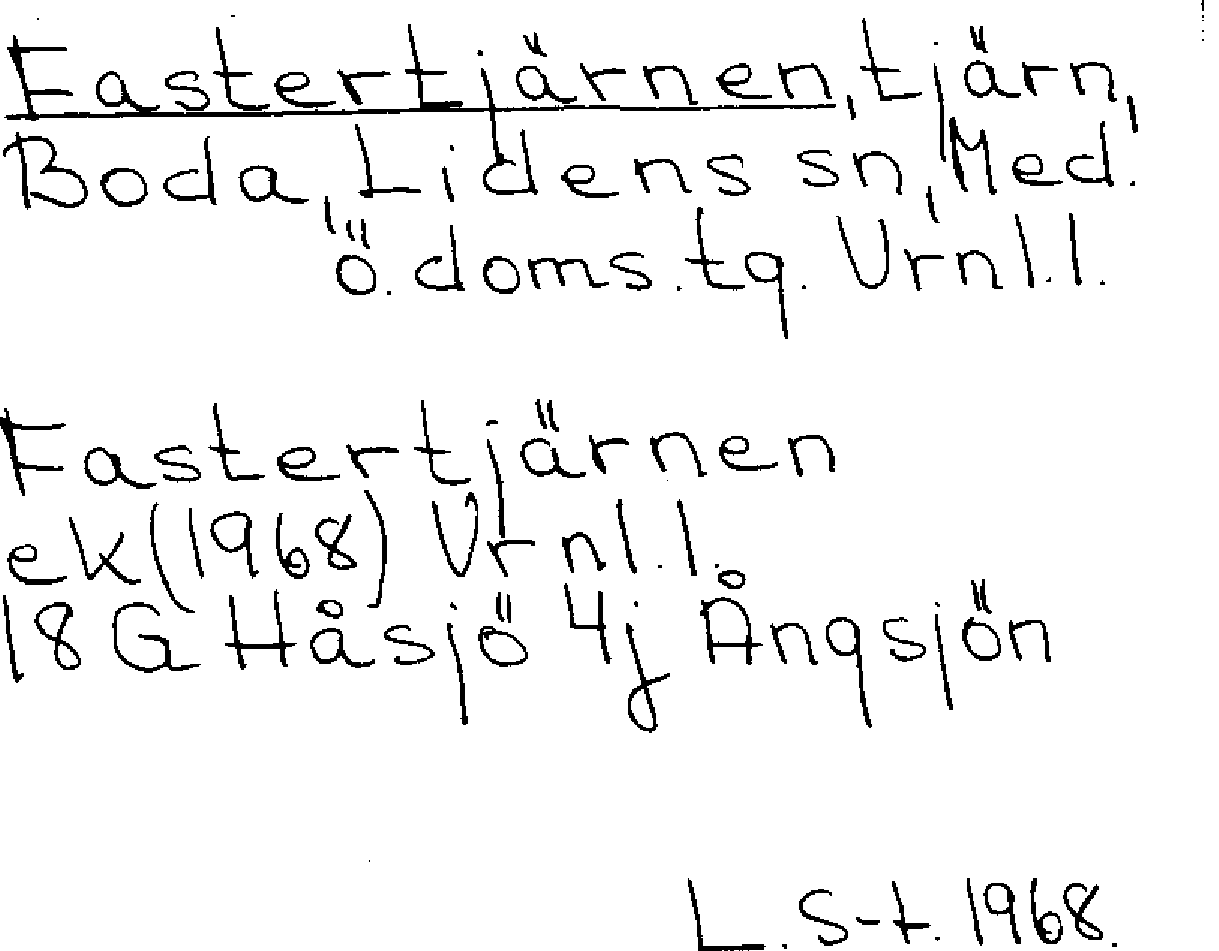 Fastertjärnen, tjärn,
Boda, Lidens sn, Med.
ö. doms. tg. Vrnl.l.
Fastertjärnen
ek (1968) Vrnl.l.
18 G Håsjö 4j Ångsjön
L. S-t. 1968.